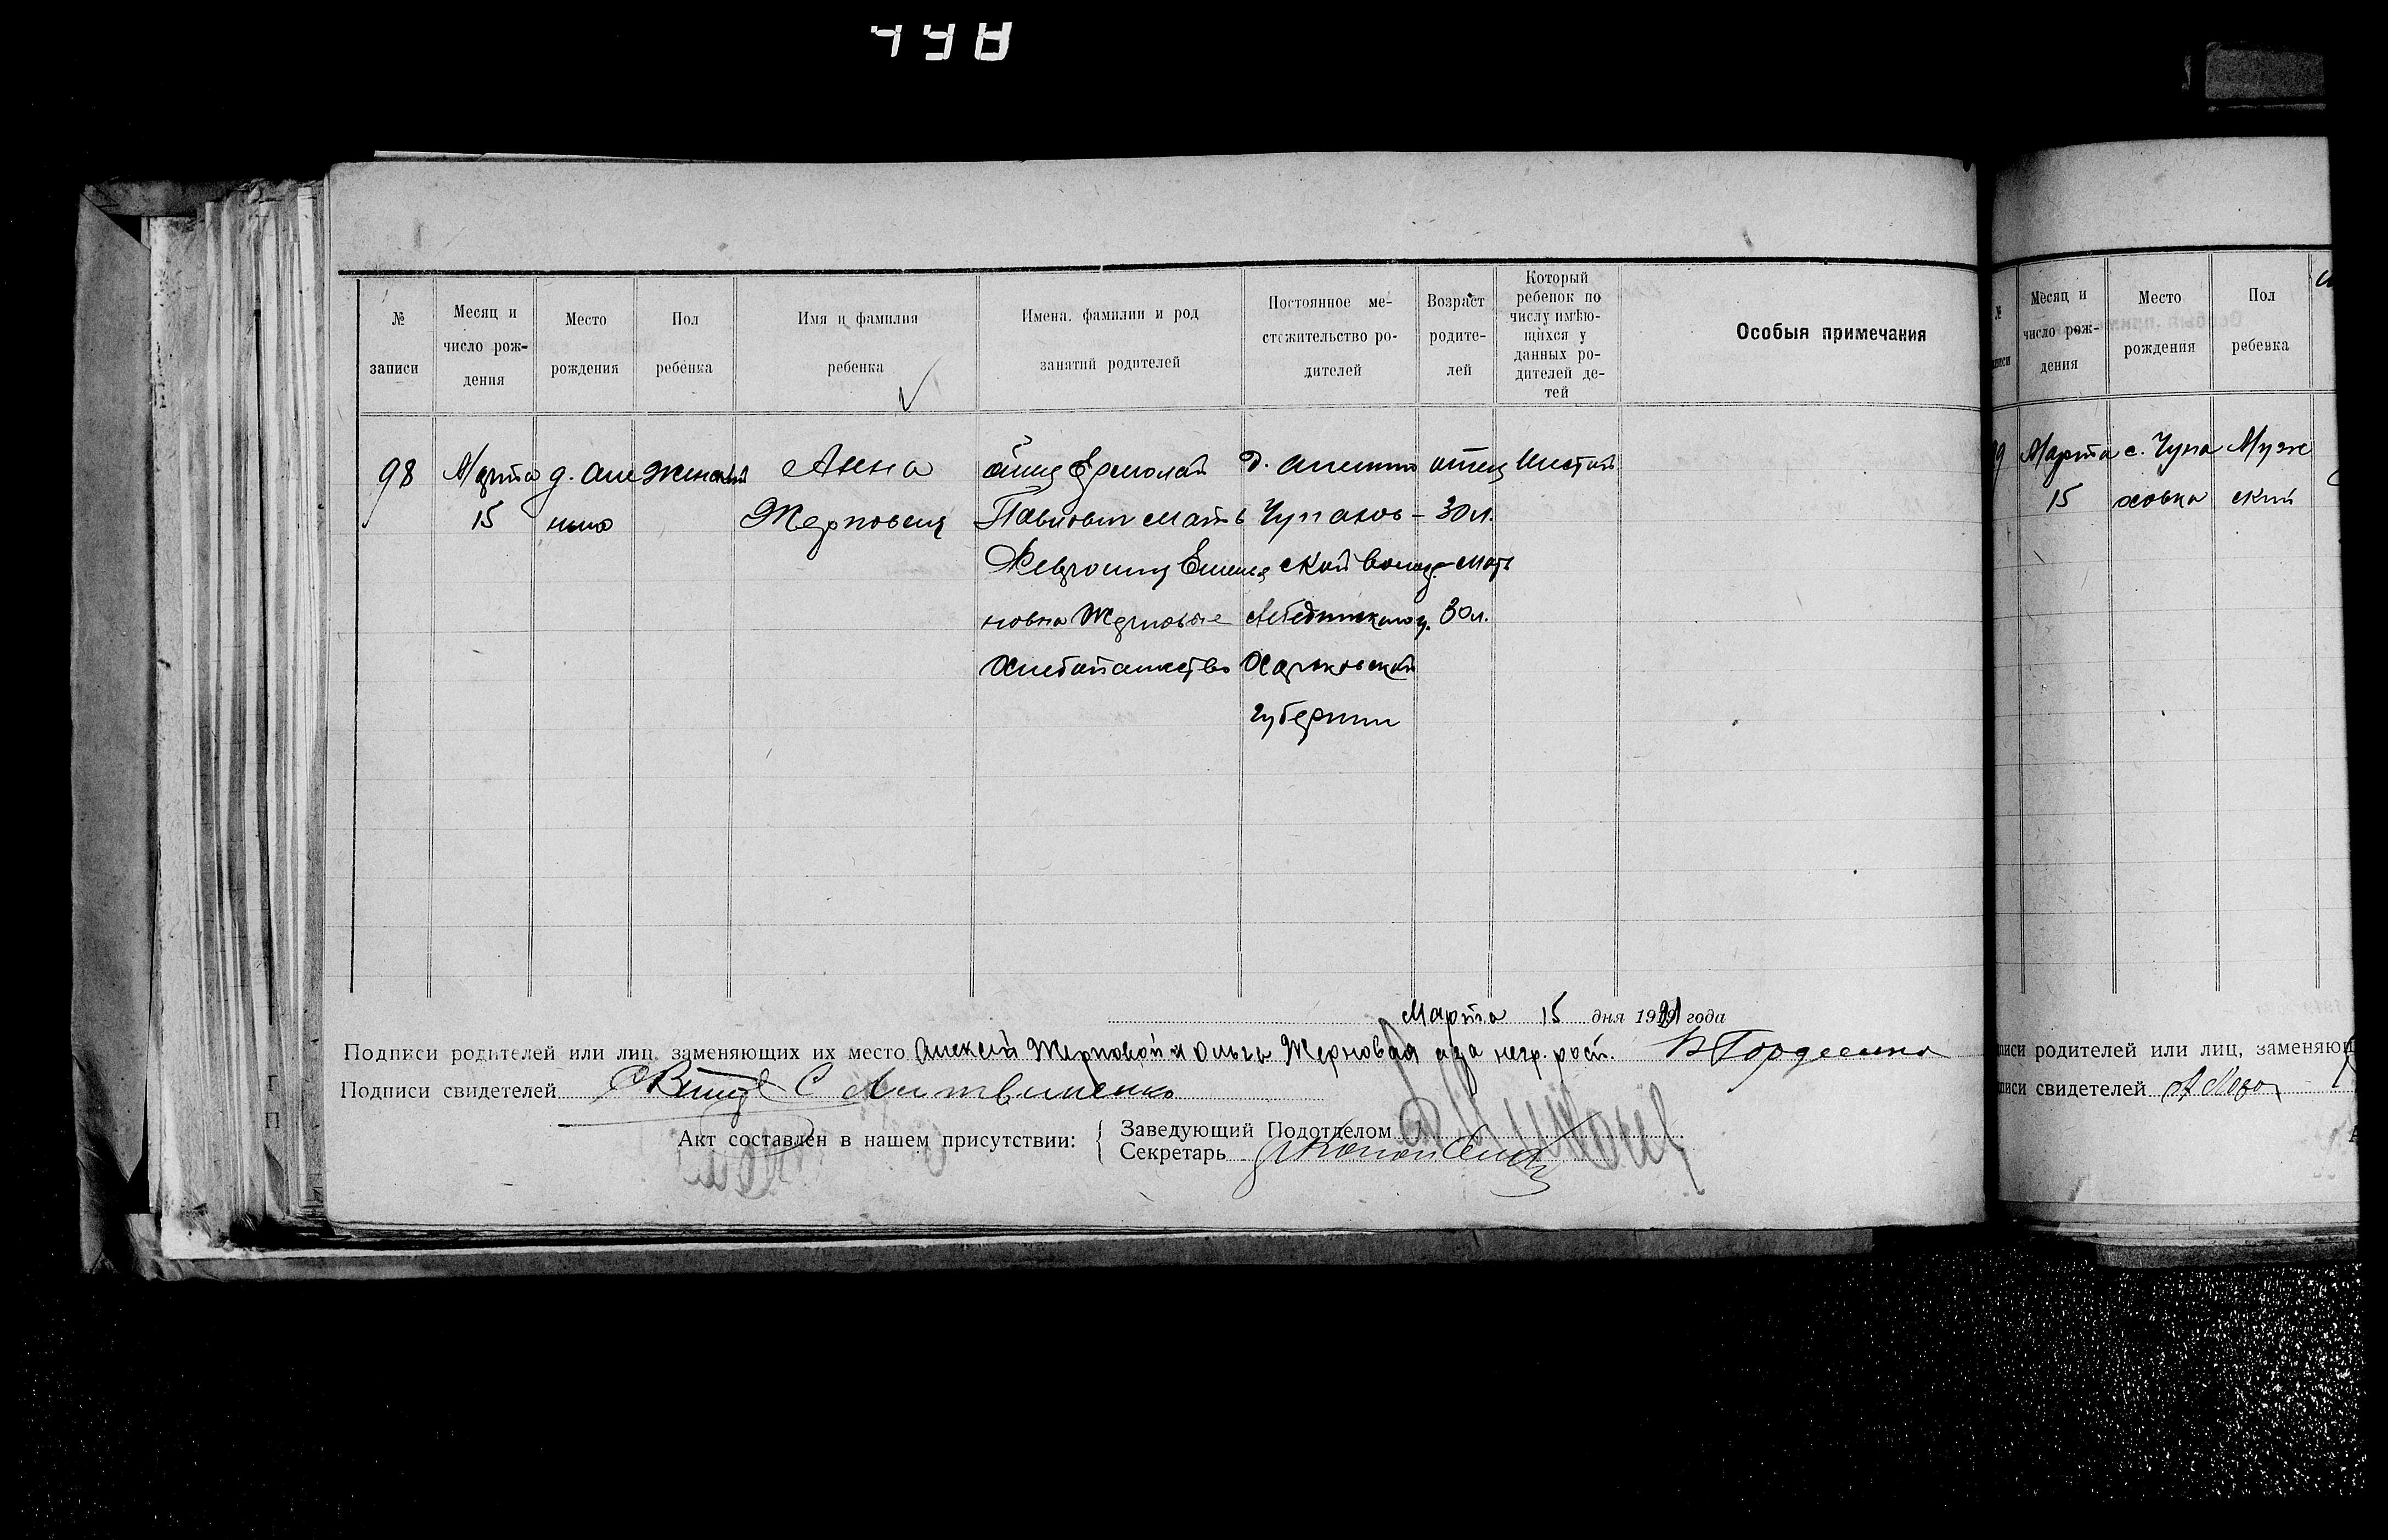 № записи
Месяц и число рож-дения
Место рождения
Пол ребенка
Имя и фамилия ребенка
Имена, фамилии и род занятий родителей
Постоянное ме-стожительство ро-дителей
Возраст родите-лей
Который ребенок по числу имѣю-щихся у данных ро-дителей де-тей
Особыя примечания
98
Марта
15
д. Але
Женский
Анна
Жерновая
отец Ермолай
Павлович мать
новна Жерновые
Хлебопашество
Чупахов-
ской волос.
Лебединского у.
Харьковской
губернии
отец
30 л.
мать
30 л.
Шестой
Марта 15 дня 1921 года
Подписи родителей или лиц, заменяющих их место Алексей Жерновой и Ольга Жерновая а за негр. росп. Гордеенко
Подписи свидетелей С Литвиненко
Акт составлен в нашем присутствии:
Заведующий Подотделом
Секретарь
Месяц и число рож-дения
Место рождения
Пол ребенка
Марта
15
с. Чупа
ховка
Муж
ский
писи родителей или лиц, заменяющ
писи свидетелей